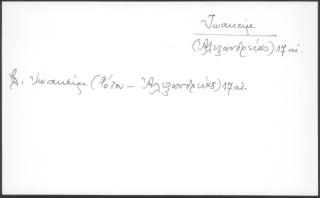 Ἰωακείμ
(Ἀλεξανδρείας) 17 αἰ.
Βλ. Ἰωακείμ (Ῥόδου – Ἀλεξανδρείας) 17 αἰ.